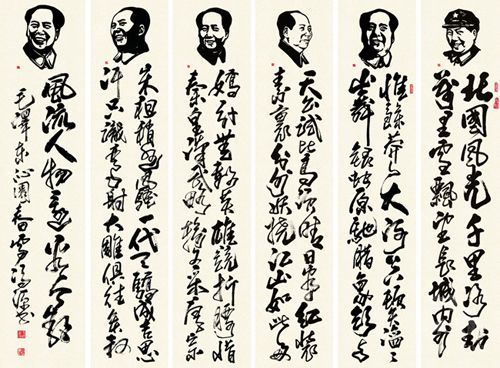 北國風光千里冰封
萬里雪飄望長城內外
惟餘莽々大河上下頓失滔々
山舞銀蛇原馳臘象欲与
天公試比高須晴日看紅裝
素裹分外妖嬈江山如此多
嬌引無數英雄競折腰惜
秦皇漢武略輸文采唐宗
宋祖稍遜風騷一代天驕成吉思
汗只識彎弓射大雕俱往矣數
風流人物還看今朝
毛澤東沁園春雪